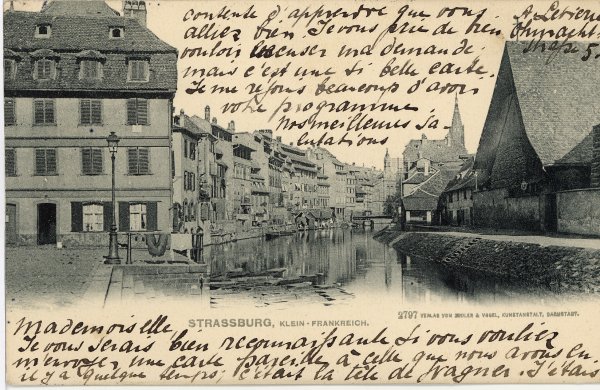 contente d'apprendre que vous
alliez bien. Je vous prie de bien
vouloir excuser ma demande
mais c'est une si belle carte.
Je me rejous beaucoup d'avoir
votre programme
Nos meilleures sa
lutations
A. Letierce
Ohmacht
strasse 5.
Mademoiselle
STRASSBURG, KLEIN-FRANKREICH.
2797 VERLAG VON ZEDLER & VOGEL, KUNSTANSTALT, DARMSTADT.
Je vous serais bien reconnaissante si vous vouliez
m'envoyer une carte pareille à celle que nous avons eu
il y a quelque temps; c'était la tête de Wagner. J'étais